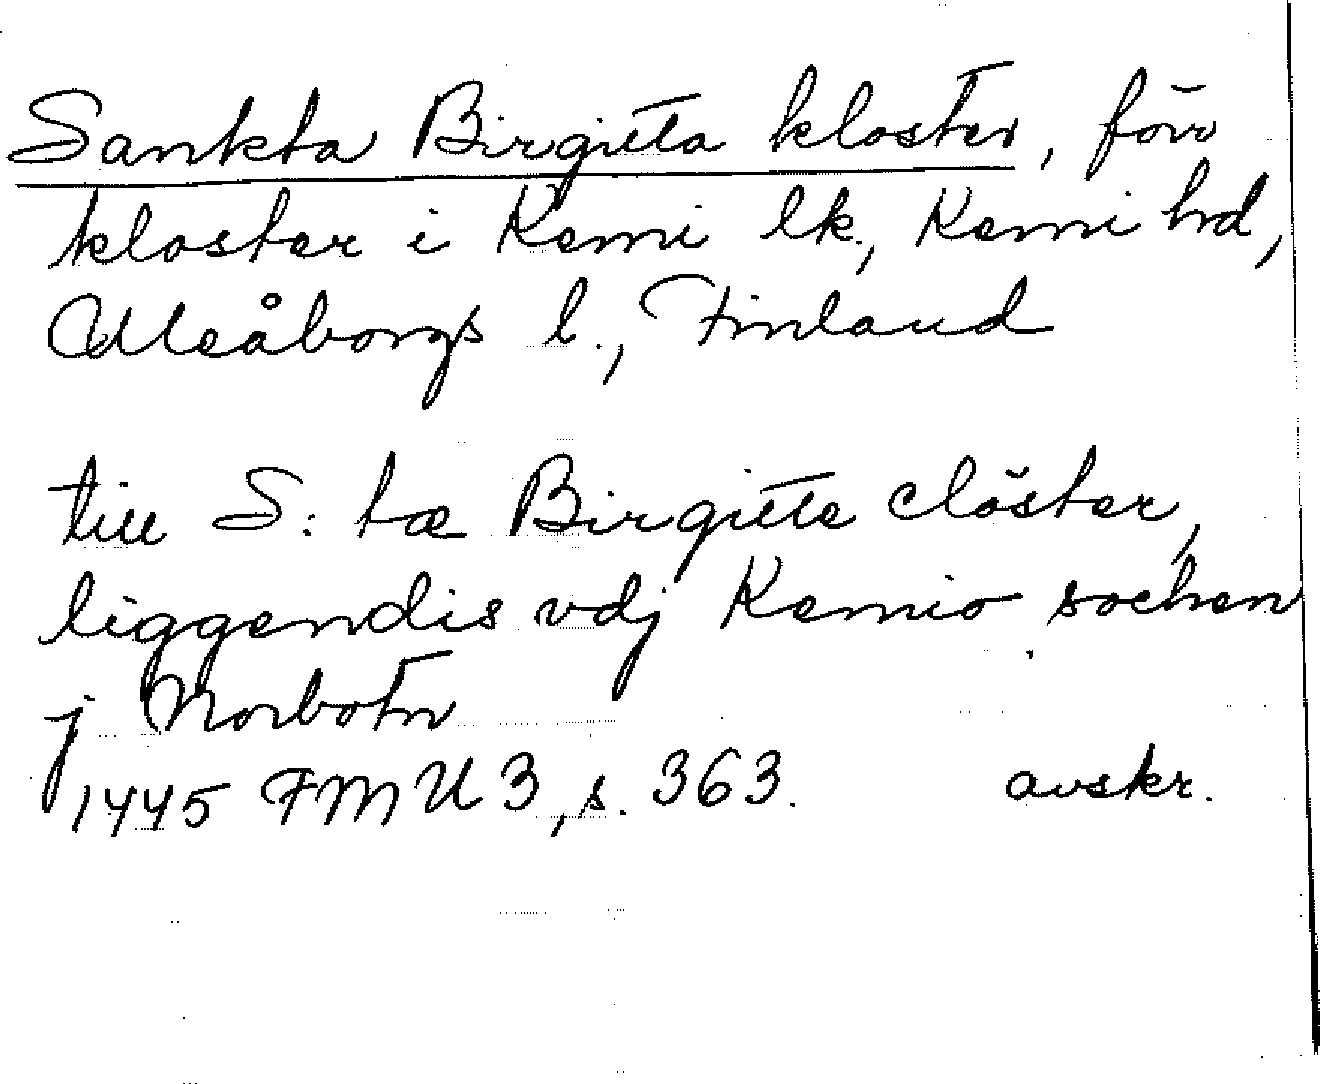 Sankta Birgitta kloster, förr
kloster i Kemi lk., Kemi hd,
Uleåborgs l., Finland
till S: tæ Birgitte clöster,
liggendis vdj Kemio sochen
j Norbotn
1445 FMU 3, s. 363. avskr.